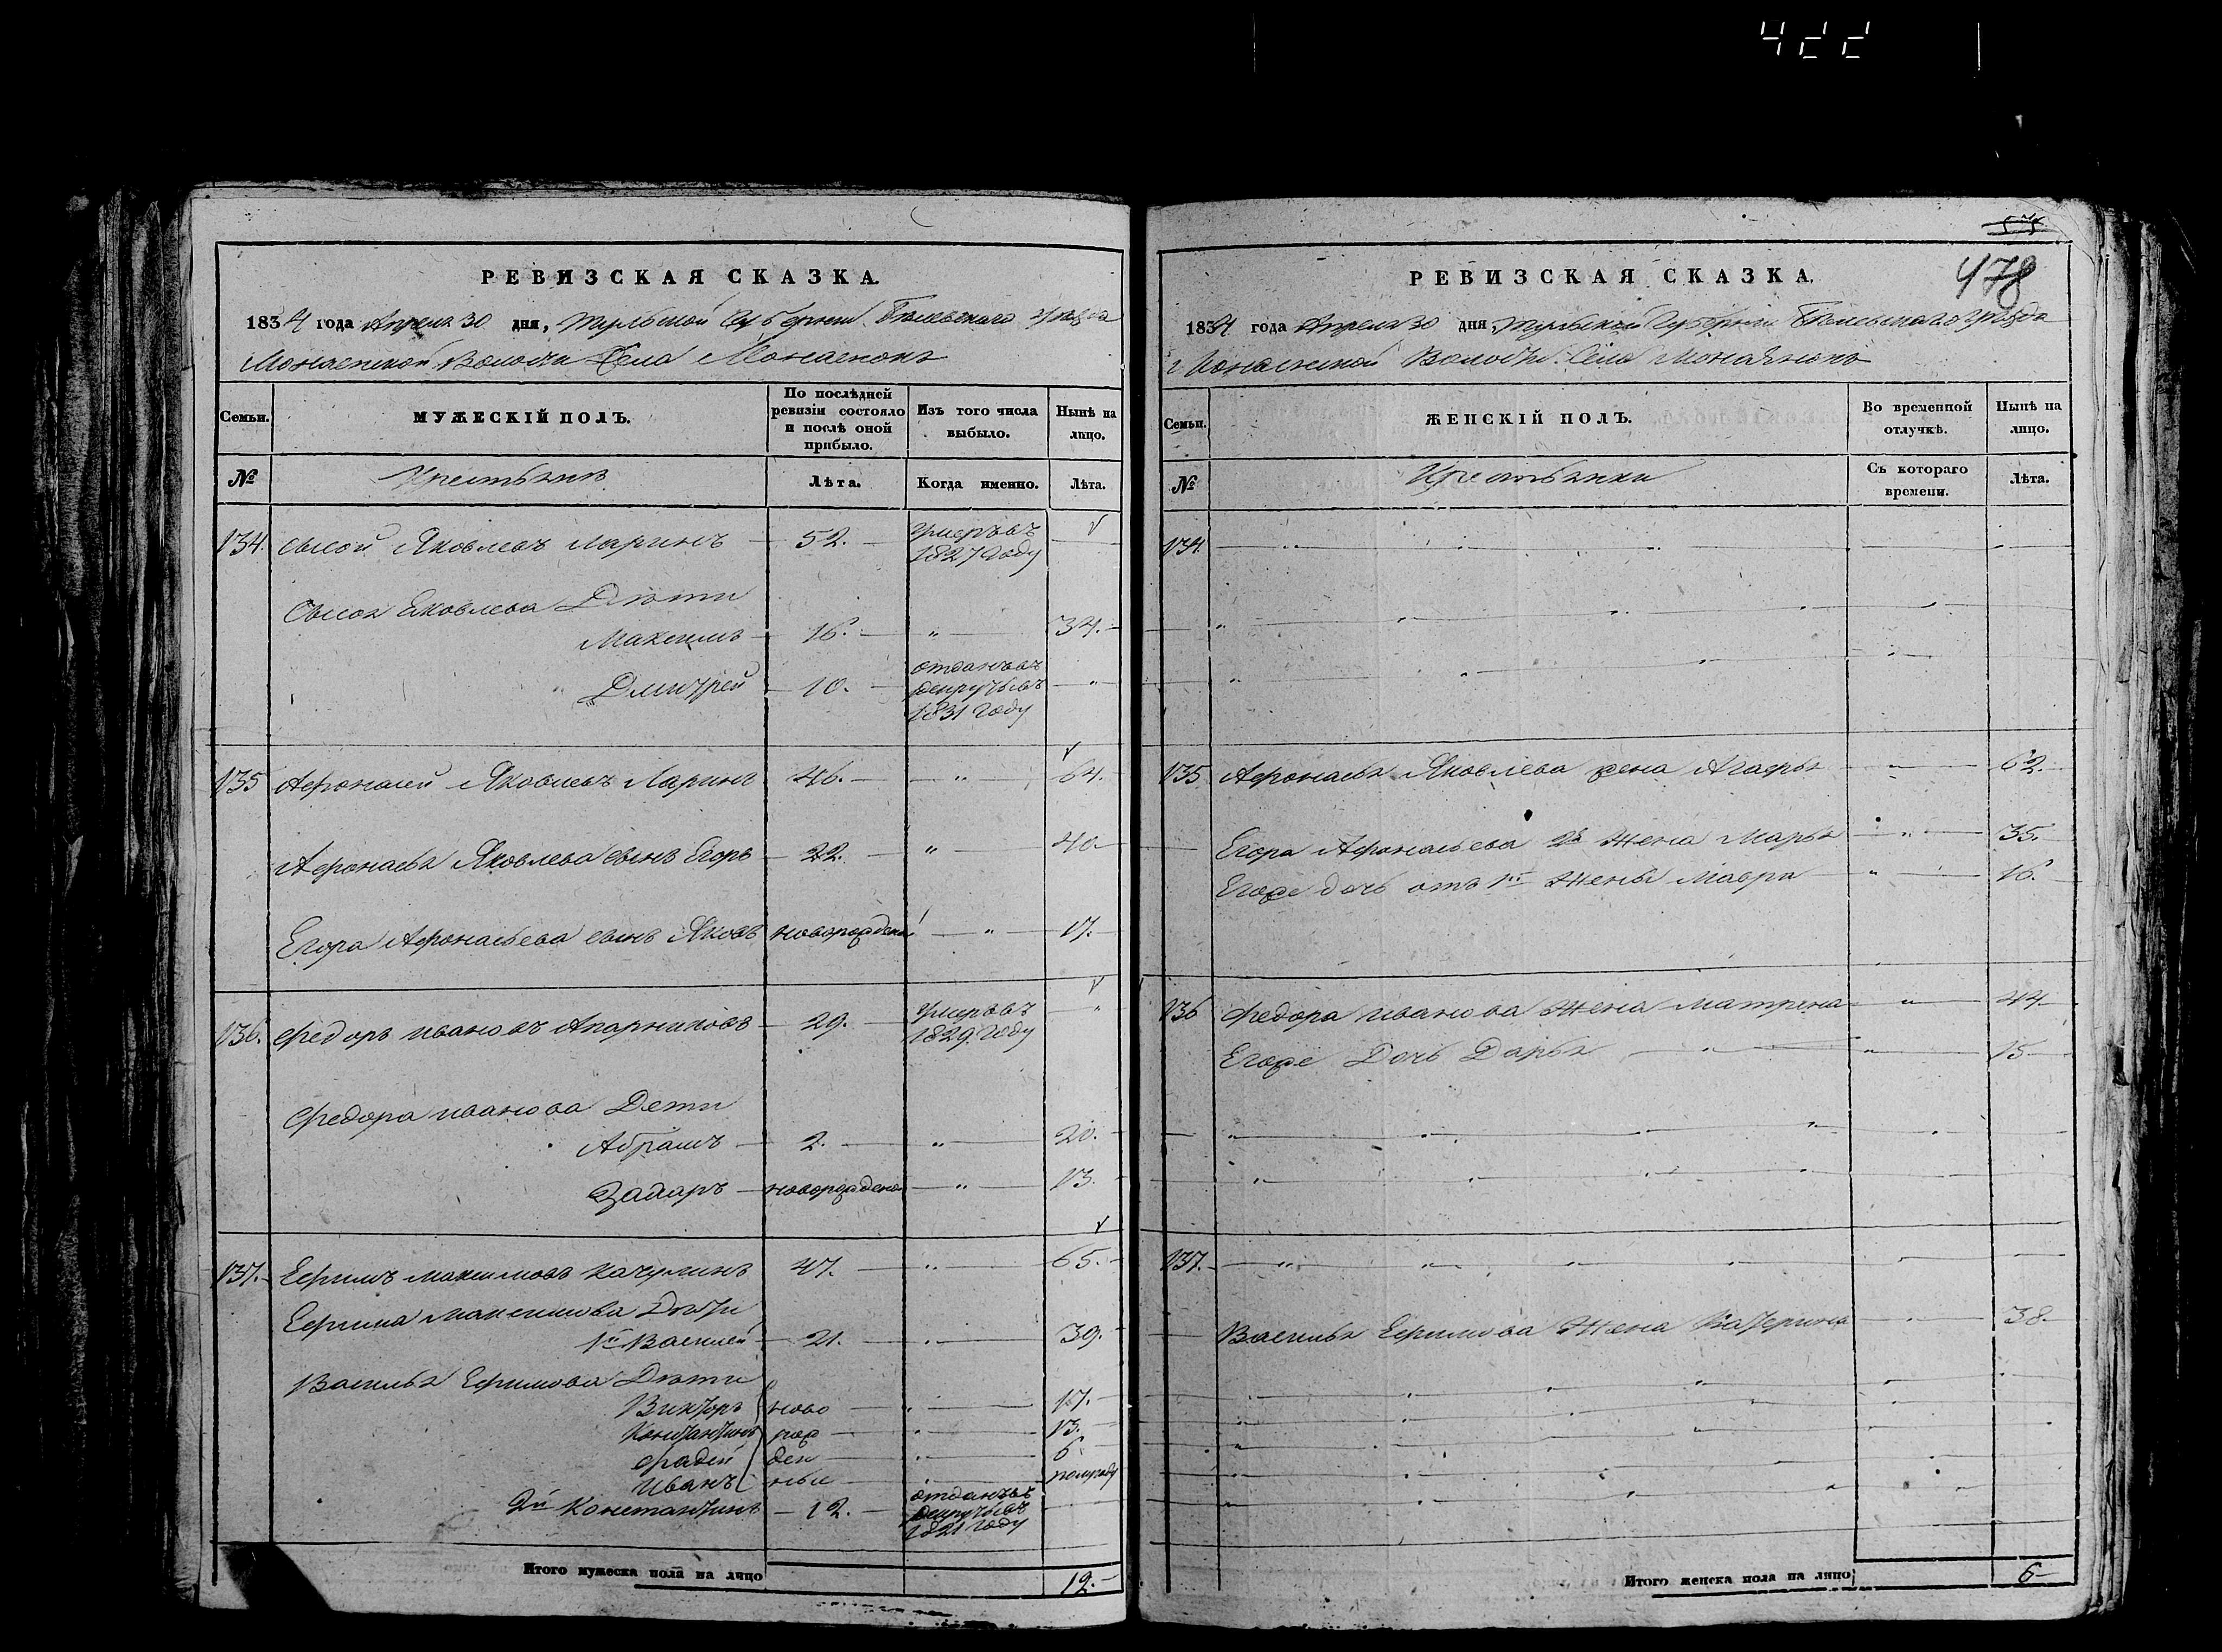 422
РЕВИЗСКАЯ СКАЗКА.
1834 года Апреля 30 дня, Тульской Губернии Белевского уезда
Волости Села
Семьи.
МУЖЕСКІЙ ПОЛЪ.
По послѣдней ревизіи состояло и послѣ оной прибыло.
Изъ того числа выбыло.
Нынѣ на лицо.
№
Крестьяне
Лѣта.
Когда именно.
Лѣта.
134. Сысой Яковлевъ Ларинъ 52. умеръ въ 1827 году
Сысоя Яковлева Дѣти
Максимъ 16. " 34.
Дмитрей 10. отданъ въ рекруты въ 1831 году "
135 Афонасей Яковлевъ Ларинъ 46. " 64.
Афонасья Яковлева сынъ Егоръ 22. " 40.
Егора Афонасьева сынъ Яковъ новорожденъ " 17.
136. Федоръ Ивановъ 29. умеръ въ 1829 году "
Федора Иванова Дети
Абрамъ 2. " 20.
Захаръ новорожденъ " 13.
137. Ефимъ Максимовъ Качулинъ 47. " 65.
Ефима Максимова Дѣти
1й Василей 21. " 39.
Василья Ефимова Дѣти
Викторъ ново " 17.
Констянтинъ рож " 13.
Фадей ден " 6
Иванъ ныи " полугоду
2й Константинъ 12. отданъ въ рекруты въ 1821 году
Итого мужеска пола на лицо 12.
575
478
РЕВИЗСКАЯ СКАЗКА.
1834 года Апреля 30 дня, Тульской Губернии Белевского уезда
Волости Села
Семьи.
ЖЕНСКІЙ ПОЛЪ.
Во временной отлучкѣ.
Нынѣ на лицо.
№
Крестьянки
Съ котораго времени.
Лѣта.
134.
135. Афонасья Яковлева жена Агафья " 62.
Егора Афонасьева 2я Жена Марья " 35.
Егоже дочь отъ 1й Жены Мавра " 16.
136 Федора Иванова Жена Матрена " 44
Егоже Дочь Дарья " 15
137.
Василья Ефимова Жена Катерина " 38.
Итого женска пола на лицо 6